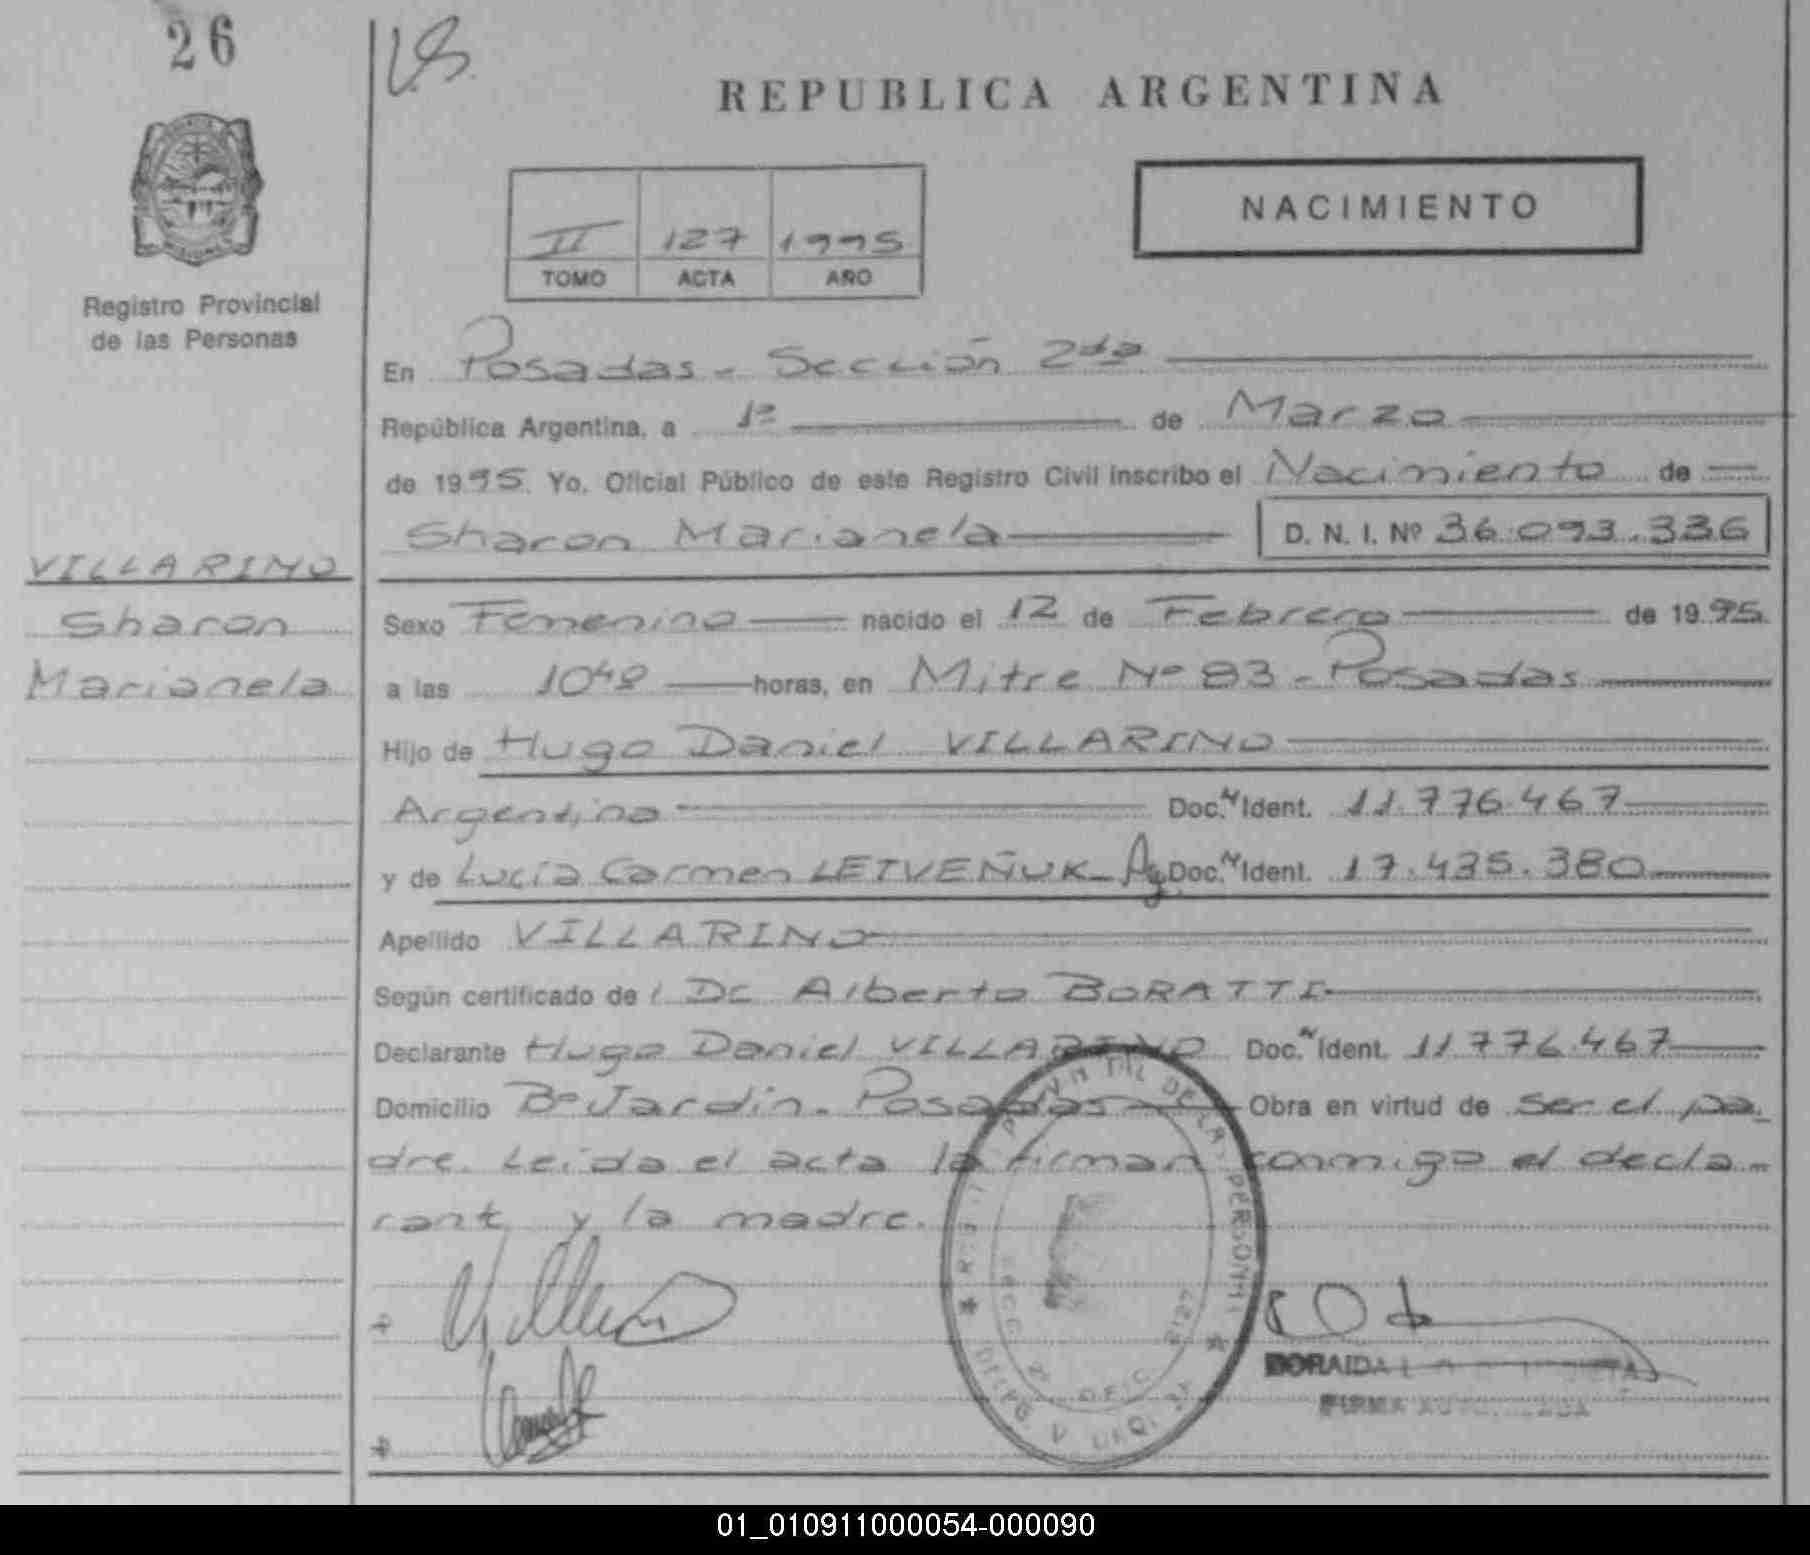 26
REPUBLICA ARGENTINA
NACIMIENTO
II 127 1995
TOMO ACTA AÑO
Registro Provincial
de las Personas
En Posadas - Sección 2da
República Argentina, a 1º de Marzo
de 1995. Yo, Oficial Público de este Registro Civil inscribo el Nacimiento de
Sharon Marianela D. N. I. Nº 36.093.336
VILLARINO
Sharon
Marianela
Sexo Femenino nacido el 12 de Febrero de 1995.
a las 10⁴⁸ horas, en Mitre Nº 83 - Posadas
Hijo de Hugo Daniel VILLARINO
Argentino Doc. Ident. 11.776.467
y de Lucía Carmen LETVEÑUK - Ag. Doc. Ident. 17.435.380
Apellido VILLARINO
Según certificado de Dr Alberto BORATTI
Declarante Hugo Daniel VILLARINO Doc. Ident. 11776.467
Domicilio Bº Jardín - Posadas Obra en virtud de ser el pa-
dre. Leída el acta la firman conmigo el decla-
rante y la madre.
DORAIDA
FIRMA
01_010911000054-000090